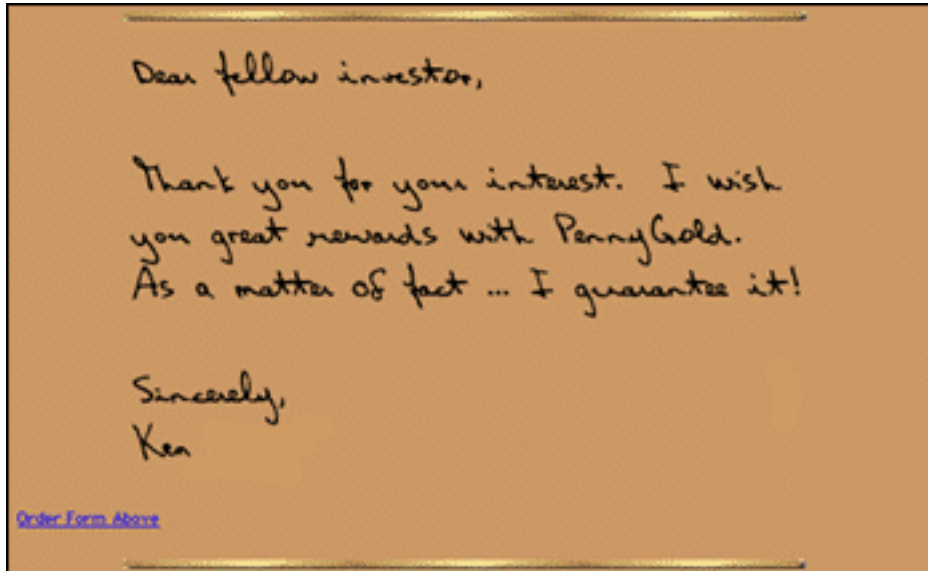 Dear fellow investor,
Thank you for your interest. I wish
you great rewards with PennyGold.
As a matter of fact ... I guarantee it!
Sincerely,
Ken
Order Form Above